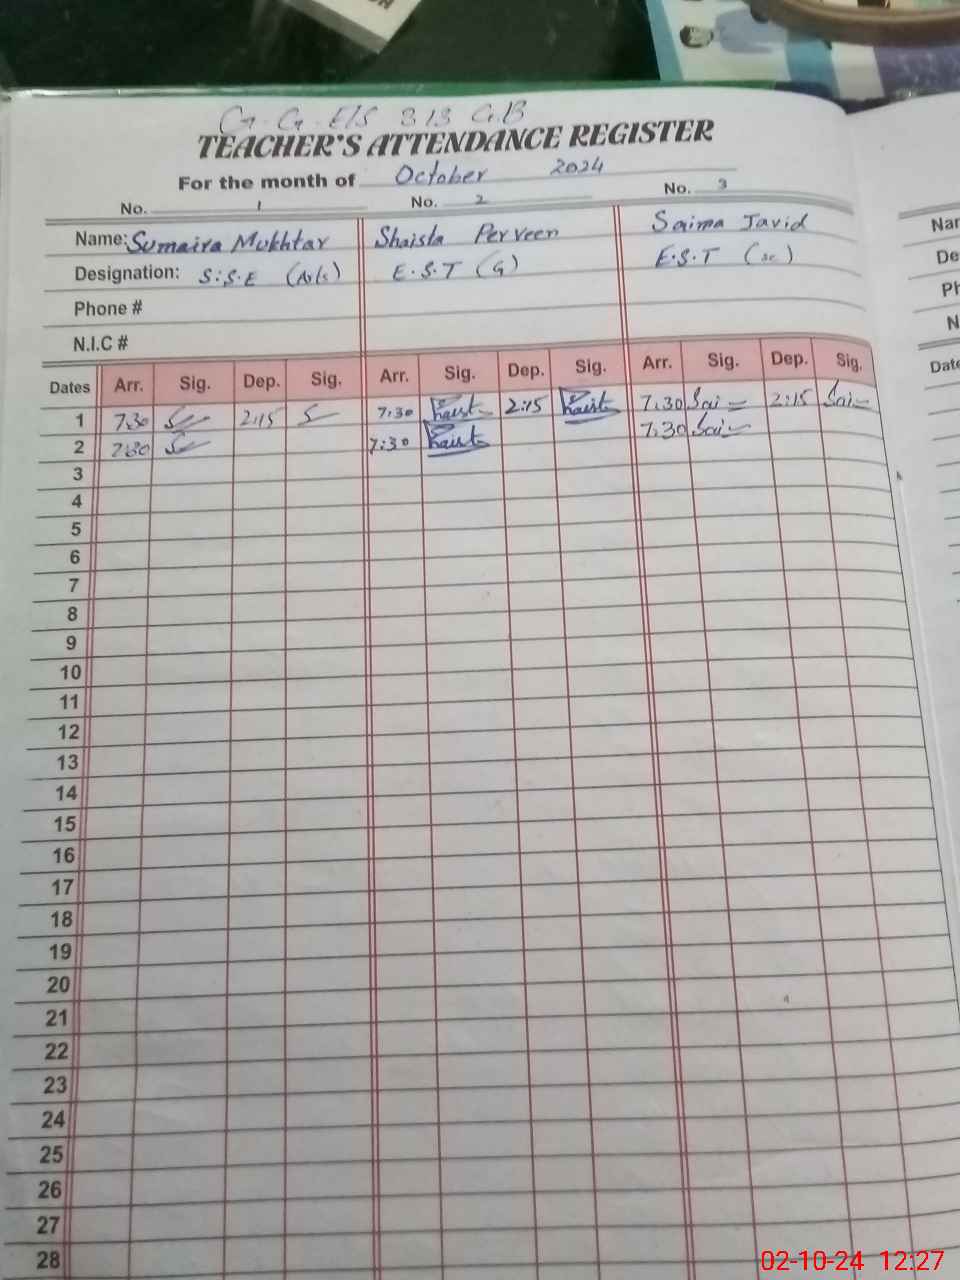 G.G.E/S 313 G.B
TEACHER'S ATTENDANCE REGISTER
For the month of October 2024
No. 1 No. 2 No. 3
Name: Sumaira Mukhtar Shaista Perveen Saima Javid
Designation: S.S.E (Arts) E.S.T (G) E.S.T (sc)
Phone #
N.I.C #
Dates Arr. Sig. Dep. Sig. Arr. Sig. Dep. Sig. Arr. Sig. Dep. Sig.
1 7:30 2:15 7:30 2:15 7:30 Sai 2:15 Sai
2 7:30 7:30 7:30 Sai
3
4
5
6
7
8
9
10
11
12
13
14
15
16
17
18
19
20
21
22
23
24
25
26
27
28
Date
02-10-24 12:27